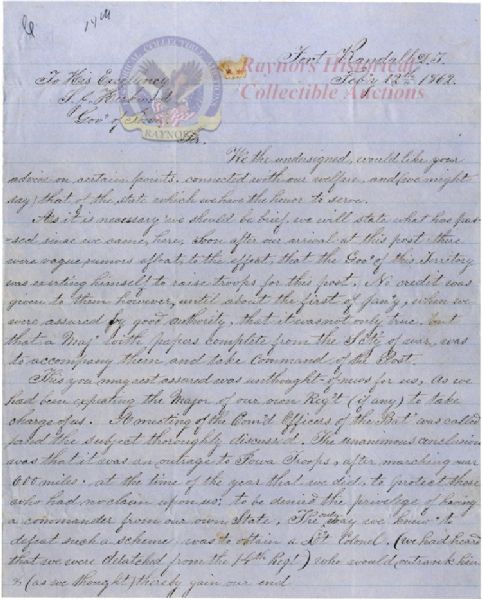 14th
Fort Randall D.T.
Feby 12th 1862.
Raynors Historical
Collectible Auctions
HISTORICAL COLLECTIBLE AUCTIONS
RAYNORS'
To His Excellency
S. J. Kirkwood
Gov. of Iowa
Sir.
We the undersigned, would like your
advice on certain points, connected with our welfare, and (we might
say) that of the state which we have the honor to serve.
As it is necessary we should be brief, we will state what has pas-
sed since we came here, soon after our arrival at this post there
were vague rumors afloat, to the effect, that the Gov. of this Territory
was exerting himself to raise troops for this post. No credit was
given to them however, until about the first of Jan'y, when we
were assured by good authority, that it was not only true, but
that a Maj. with papers complete from the Sec'ty of war, was
to accompany them and take command of the Post.
This you may rest assured was unthought of news for us, as we
had been expecting the Major of our own Reg't (if any) to take
charge of us. A meeting of the Com'd Officers of the Bat. was called
and the subject thoroughly discussed. The unanimous conclusion
was that it was an outrage to Iowa Troops, after marching near
600 miles, at the time of the year that we did, to protect those
who had no claim upon us; to be denied the privelege of having
a commander from our own State. The only way we knew to
defeat such a scheme was to obtain a Lt Colonel, (we had heard
that we were detatched from the 14th Reg't) who would outrank him
& (as we thought) thereby gain our end